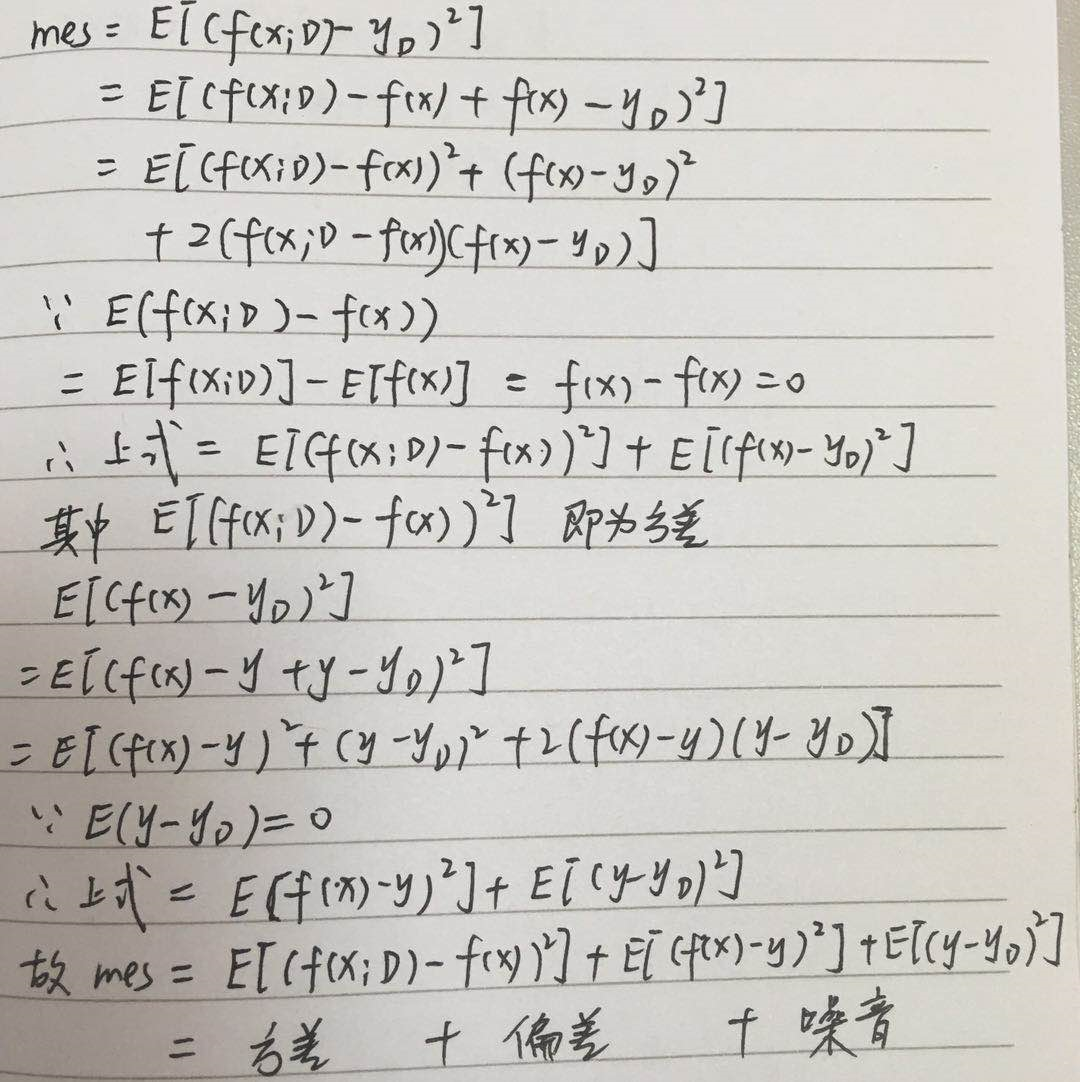 mes = E[(f(x;D)-y_D)²]
= E[(f(x;D)-f(x)+f(x)-y_D)²]
= E[(f(x;D)-f(x))²+(f(x)-y_D)²
+2(f(x;D-f(x))(f(x)-y_D)]
∵ E(f(x;D)-f(x))
= E[f(x;D)]-E[f(x)] = f(x)-f(x)=0
∴ 上式 = E[(f(x;D)-f(x))²]+E[(f(x)-y_D)²]
其中 E[(f(x;D))-f(x))²] 即为方差
E[(f(x)-y_D)²]
=E[(f(x)-y+y-y_D)²]
= E[(f(x)-y)²+(y-y_D)²+2(f(x)-y)(y-y_D)]
∵ E(y-y_D)=0
∴ 上式 = E[f(x)-y)²]+E[(y-y_D)²]
故 mes = E[(f(x;D)-f(x))²]+E[(f(x)-y)²]+E[(y-y_D)²]
= 方差 + 偏差 + 噪音